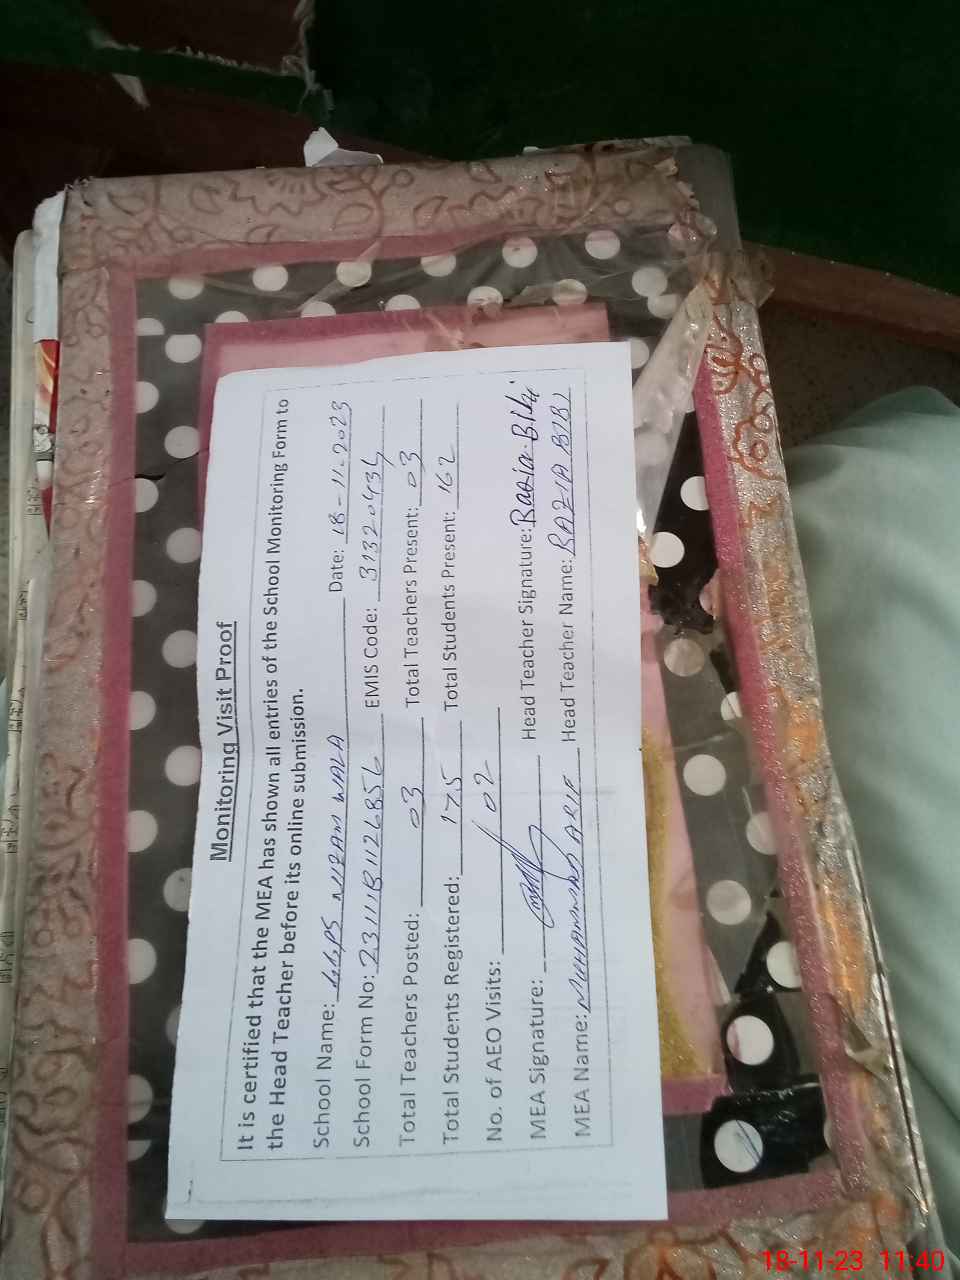 Monitoring Visit Proof
It is certified that the MEA has shown all entries of the School Monitoring Form to
the Head Teacher before its online submission.
School Name: GGPS NIZAM WALA Date: 18-11-2023
School Form No: 2311IB1126856 EMIS Code: 31320434
Total Teachers Posted: 03 Total Teachers Present: 03
Total Students Registered: 175 Total Students Present: 162
No. of AEO Visits: 02
MEA Signature: Head Teacher Signature: Razia Bibi
MEA Name: MUHAMMAD ARIF Head Teacher Name: RAZIA BIBI
18-11-23 11:40